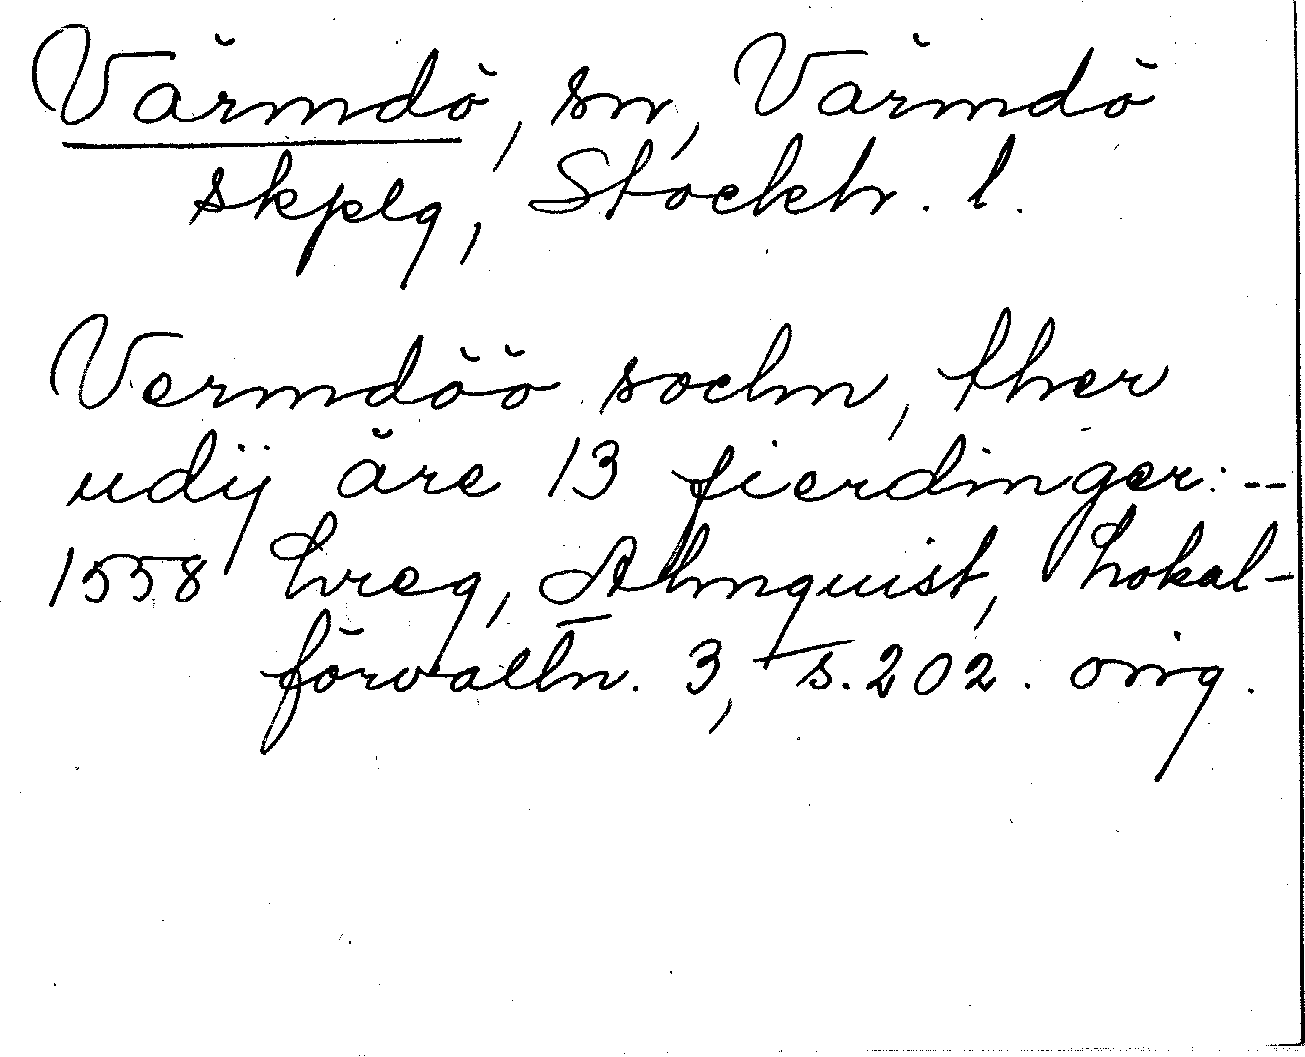 Värmdö, sn, Värmdö
skplg, Stockh. l.
Vermdöö sochn, ther
udij äre 13 fierdinger: --
1558 hreg, Almquist, Lokal-
förvaltn. 3, s. 202. orig.